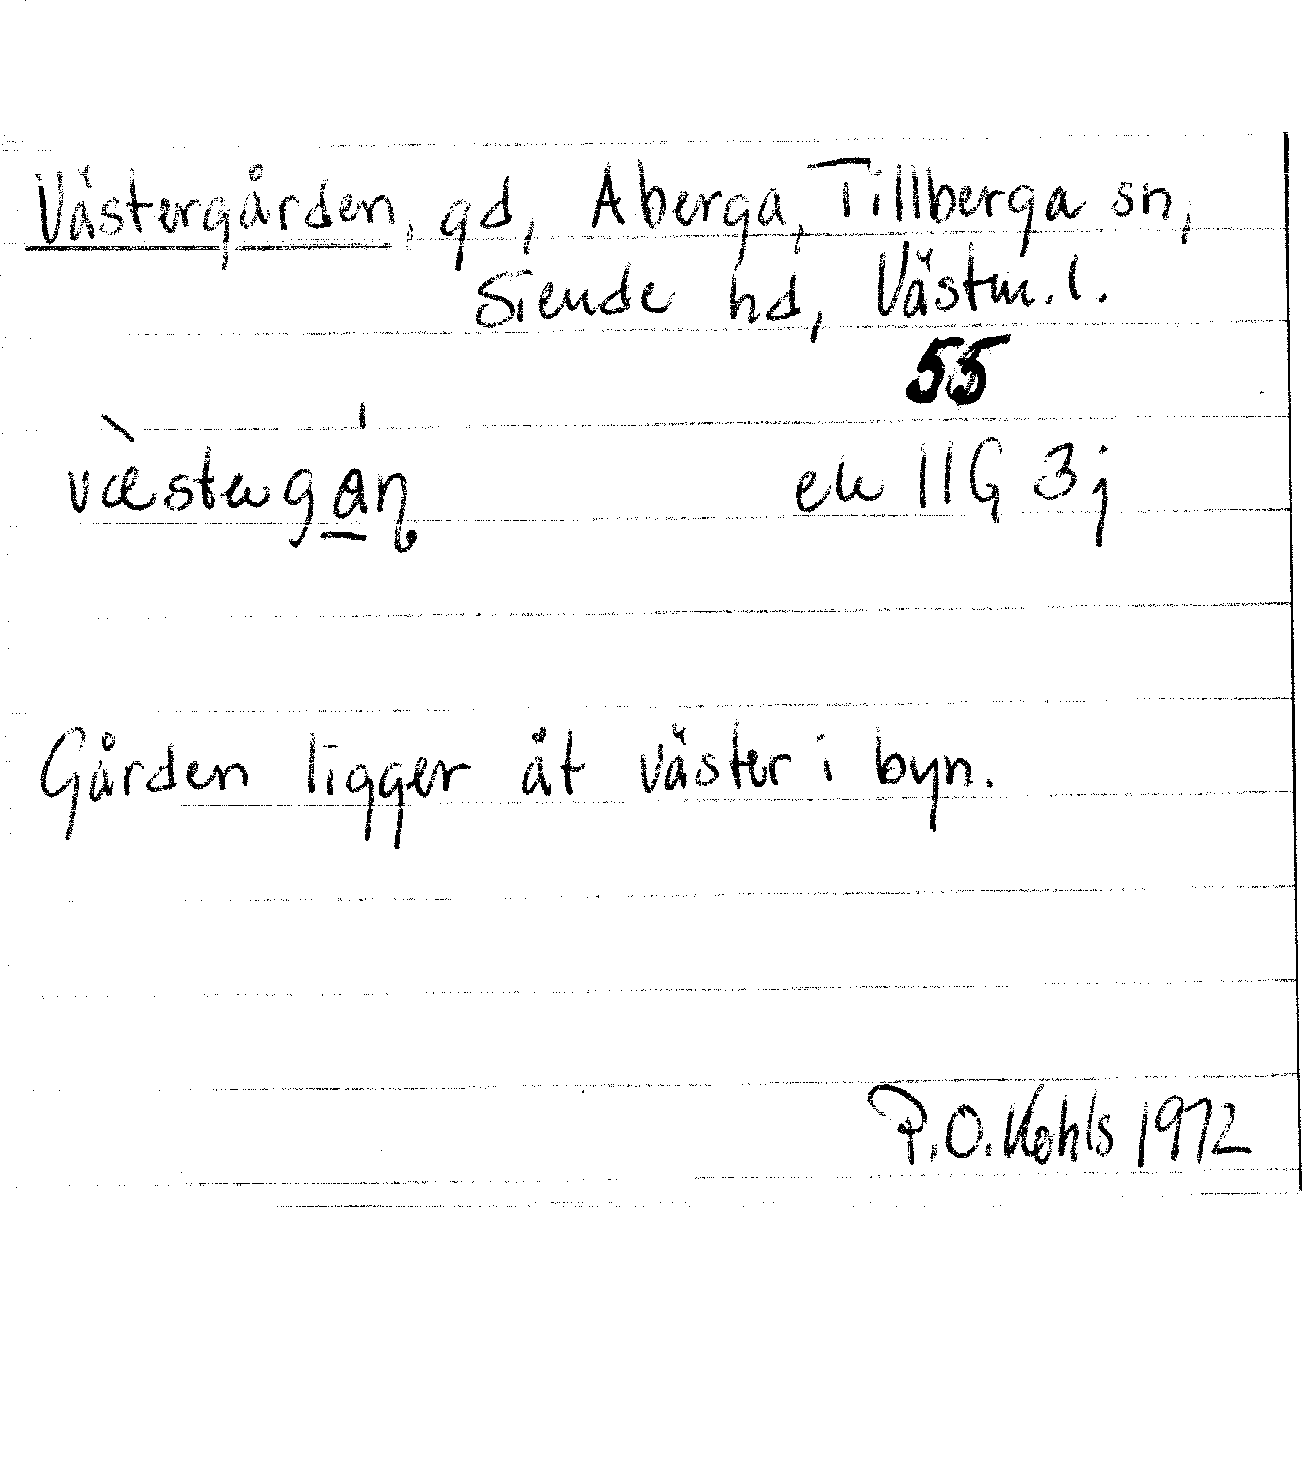 Västergården, gd, Aberga, Tillberga sn,
Siende hd, Västm. l.
55
væstergaṇ ek 11G 3j
Gården ligger åt väster i byn.
P.O. Kohls 1972